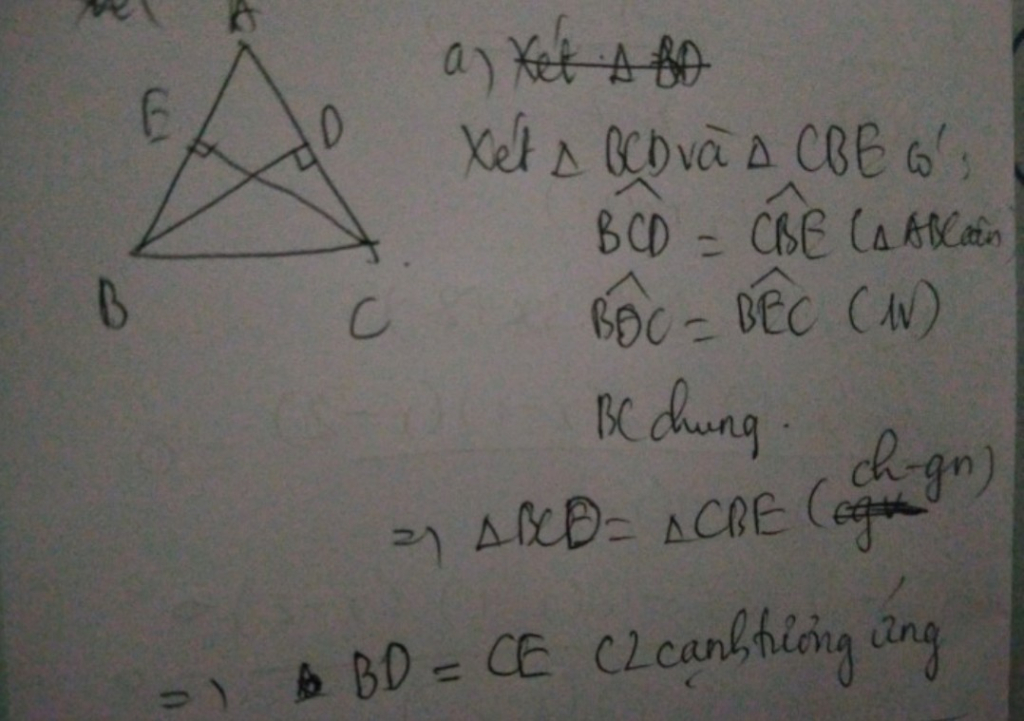 A
E
D
B
C
a) Xét Δ BD
Xét Δ BCD và Δ CBE có:
BCD = CBE (Δ ABC cân
BDC = BEC (1V)
BC chung.
=> ΔBCD = ΔCBE (ch-gn)
=> BD = CE (2 cạnh tương ứng